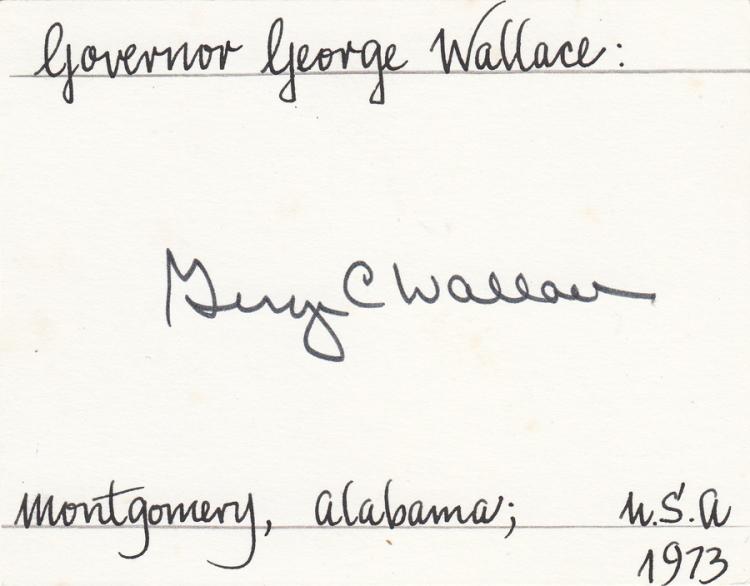 Governor George Wallace:
George C Wallace
Montgomery, Alabama; U.S.A
1973